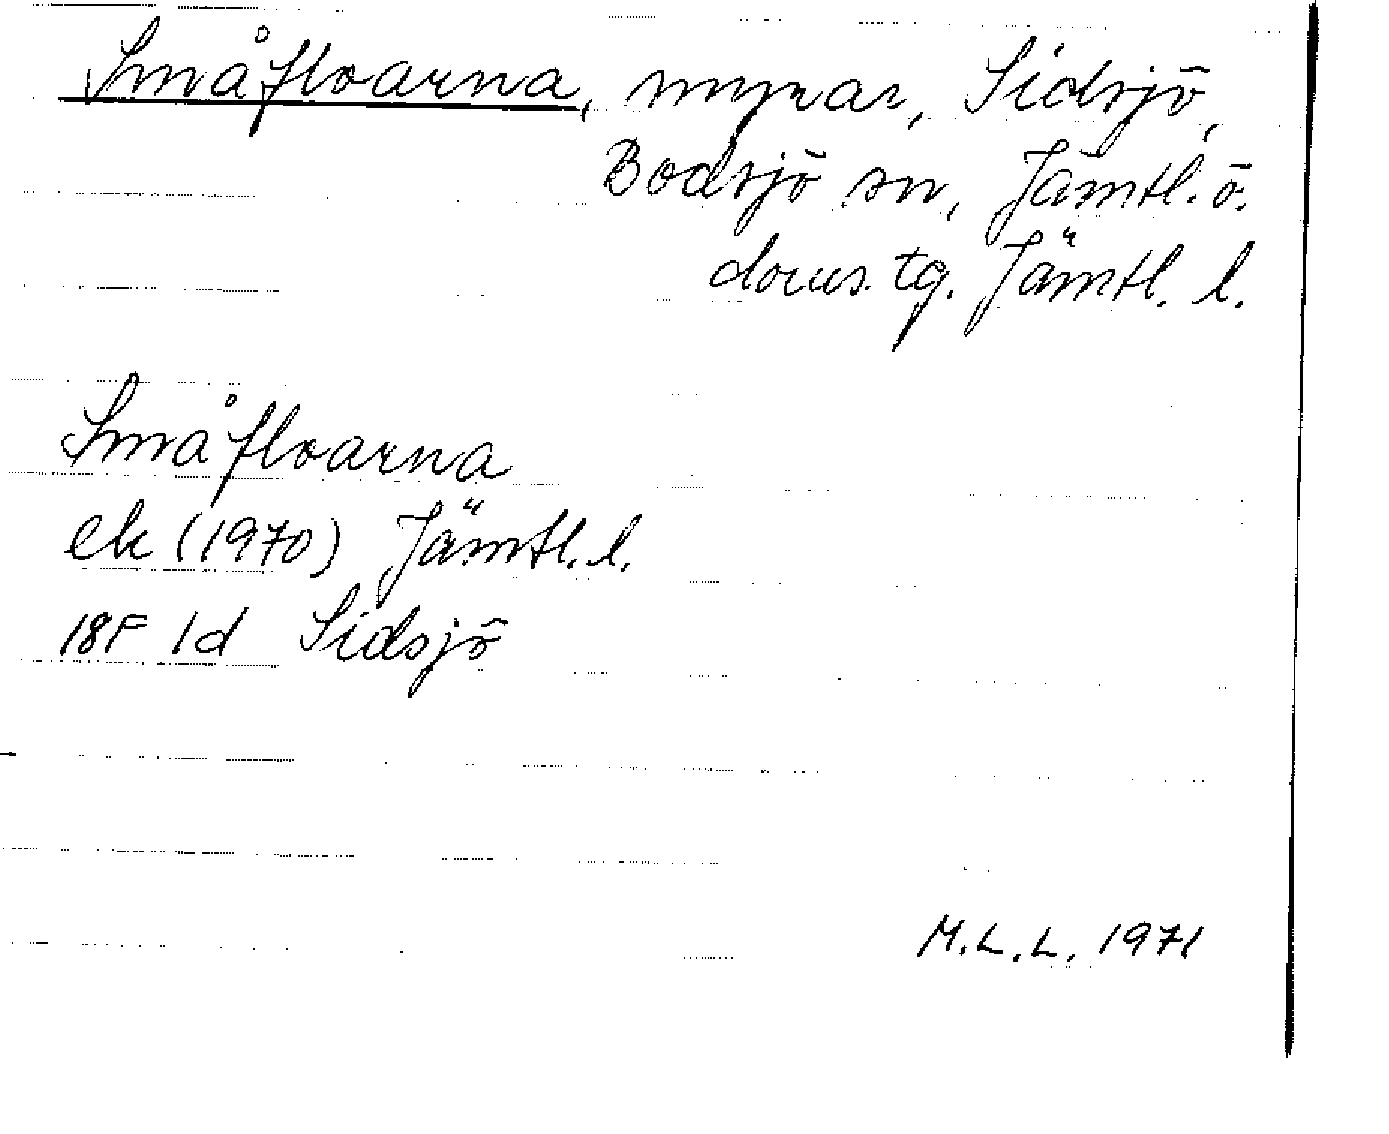 Småfloarna, myrar, Sidsjö,
Bodsjö sn, Jämtl. ö.
doms. tg. Jämtl. l.
Småfloarna
ek (1970) Jämtl. l.
18F 1d Sidsjö
M.L.L. 1971